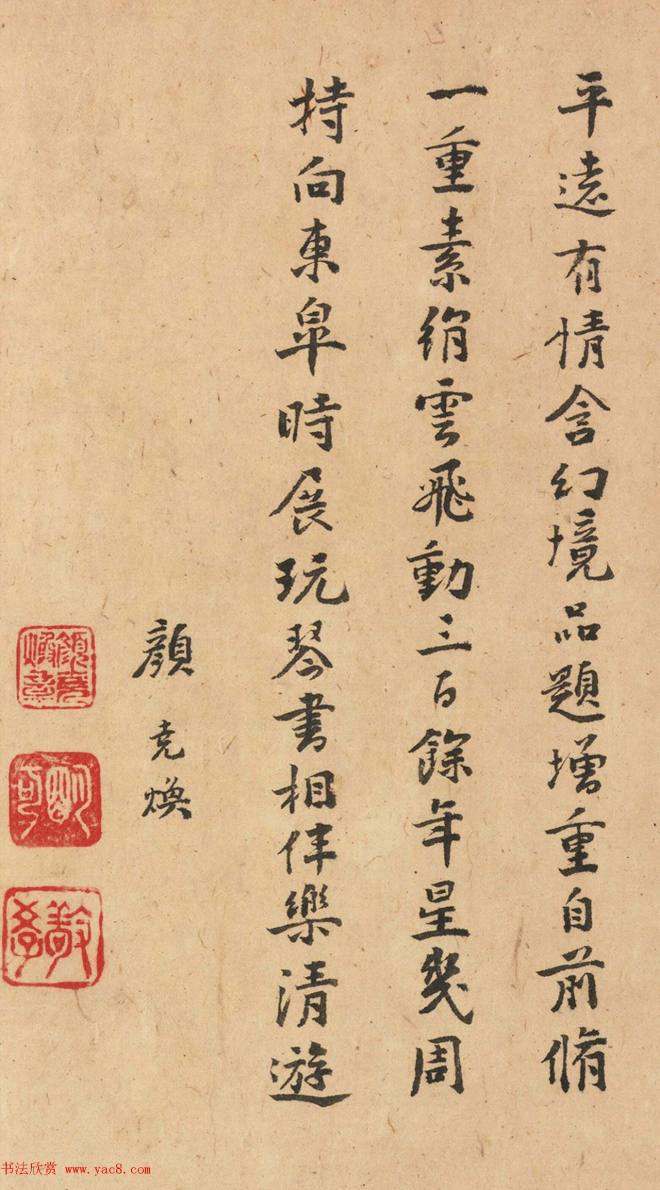 平遠有情含幻境品題增重自前脩
一重素絹雲飛動三百餘年星幾周
持向東皐時展玩琴書相伴樂清遊
顏堯煥
书法欣赏 www.yac8.com